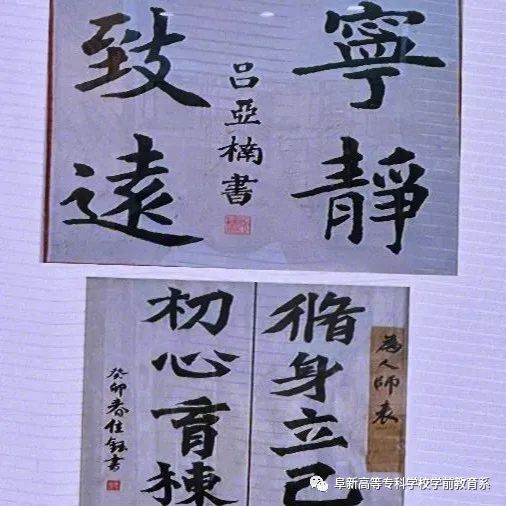 寧靜
致遠
吕亞楠書
為人師表
脩身立己
初心育棟
癸卯春佳鈺書
阜新高等专科学校学前教育系